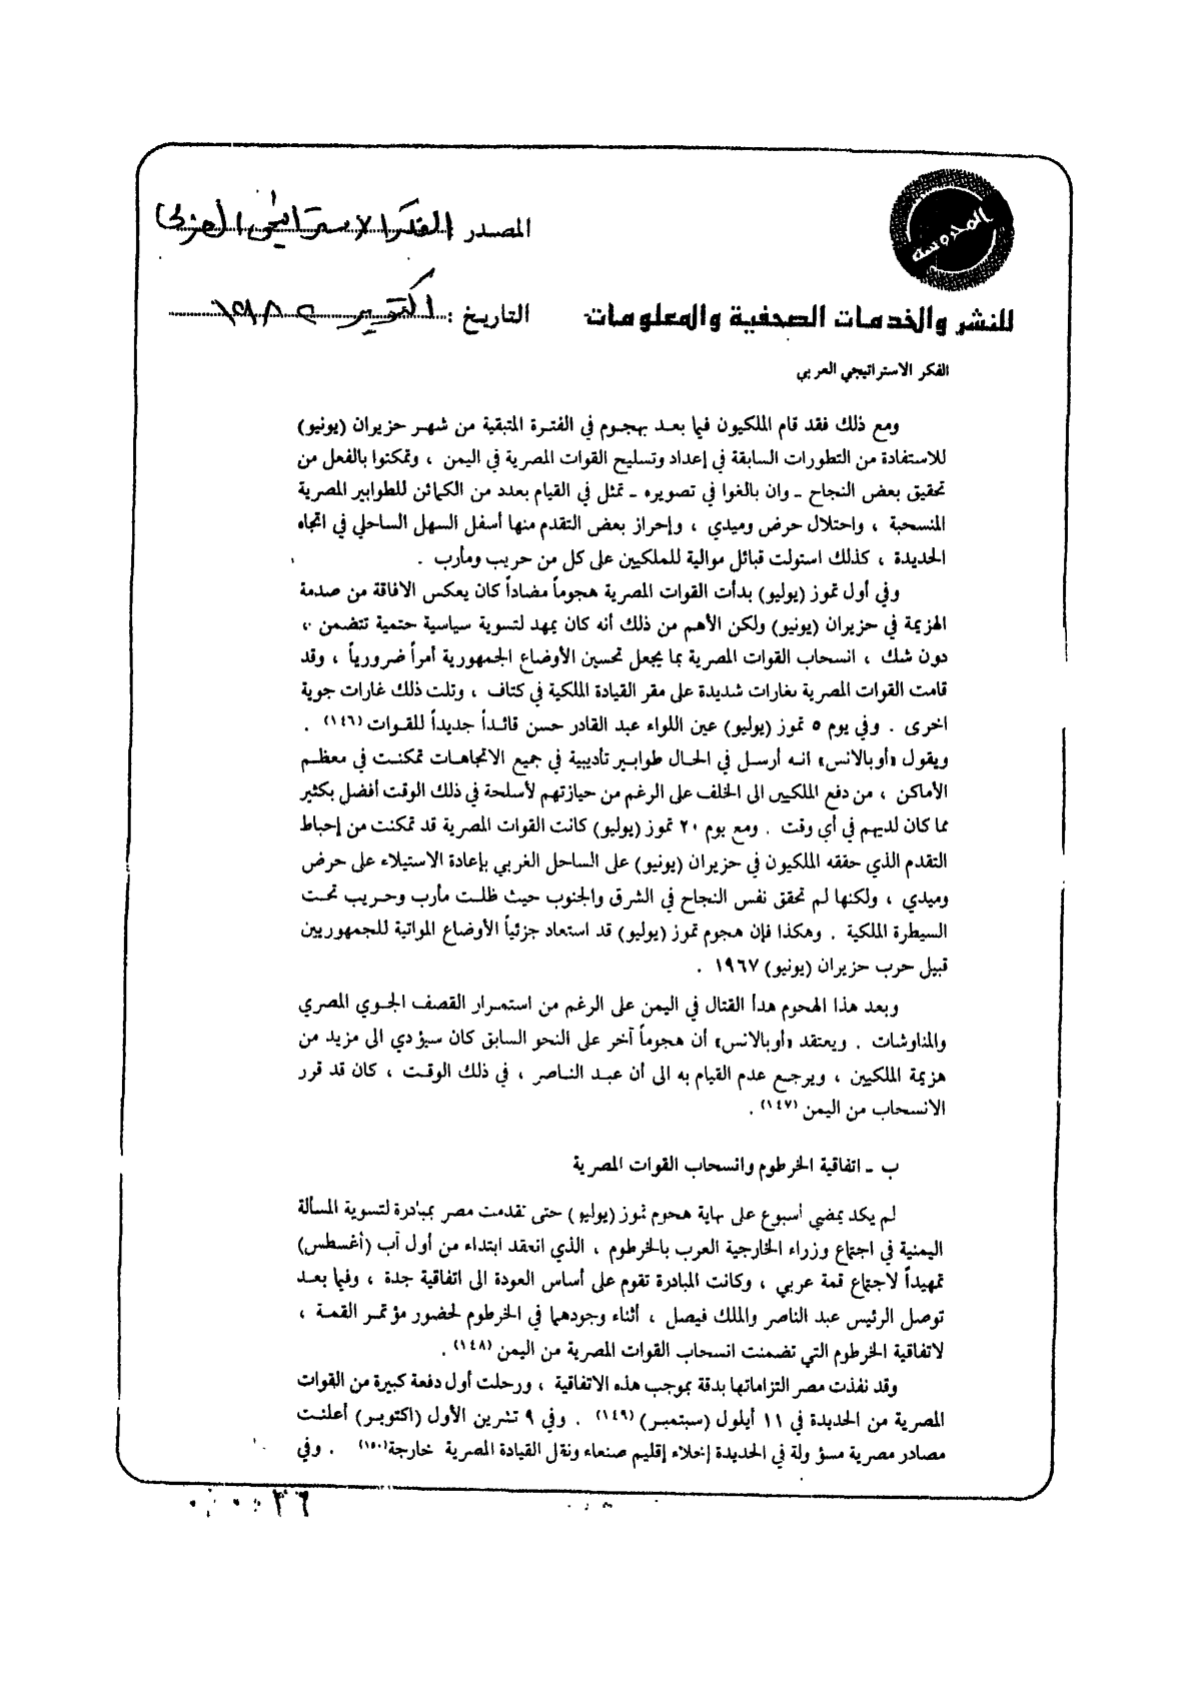 المحروسة
المصدر الفكر الاستراتيجي العربي
للنشر والخدمات الصحفية والمعلومات
التاريخ : أكتوبر ١٩٨٢
الفكر الاستراتيجي العربي
ومع ذلك فقد قام الملكيون فيما بعد بهجوم في الفترة المتبقية من شهر حزيران (يونيو)
للاستفادة من التطورات السابقة في إعداد وتسليح القوات المصرية في اليمن ، وتمكنوا بالفعل من
تحقيق بعض النجاح ـ وان بالغوا في تصويره ـ تمثل في القيام بعدد من الكمائن للطوابير المصرية
المنسحبة ، واحتلال حرض وميدي ، وإحراز بعض التقدم منها أسفل السهل الساحلي في اتجاه
الحديدة ، كذلك استولت قبائل موالية للملكيين على كل من حريب ومأرب .
وفي أول تموز (يوليو) بدأت القوات المصرية هجوماً مضاداً كان يعكس الافاقة من صدمة
الهزيمة في حزيران (يونيو) ولكن الأهم من ذلك أنه كان يمهد لتسوية سياسية حتمية تتضمن ،
دون شك ، انسحاب القوات المصرية بما يجعل تحسين الأوضاع الجمهورية أمراً ضرورياً ، وقد
قامت القوات المصرية بغارات شديدة على مقر القيادة الملكية في كتاف ، وتلت ذلك غارات جوية
اخرى . وفي يوم ٥ تموز (يوليو) عين اللواء عبد القادر حسن قائداً جديداً للقوات (١٤٦) .
ويقول «أوبالانس» انه أرسل في الحال طوابير تأديبية في جميع الاتجاهات تمكنت في معظم
الأماكن ، من دفع الملكيين الى الخلف على الرغم من حيازتهم لأسلحة في ذلك الوقت أفضل بكثير
مما كان لديهم في أي وقت . ومع يوم ٢٠ تموز (يوليو) كانت القوات المصرية قد تمكنت من إحباط
التقدم الذي حققه الملكيون في حزيران (يونيو) على الساحل الغربي بإعادة الاستيلاء على حرض
وميدي ، ولكنها لم تحقق نفس النجاح في الشرق والجنوب حيث ظلت مأرب وحريب تحت
السيطرة الملكية . وهكذا فإن هجوم تموز (يوليو) قد استعاد جزئياً الأوضاع المواتية للجمهوريين
قبيل حرب حزيران (يونيو) ١٩٦٧ .
وبعد هذا الهجوم هدأ القتال في اليمن على الرغم من استمرار القصف الجوي المصري
والمناوشات . ويعتقد «أوبالانس» أن هجوماً آخر على النحو السابق كان سيؤدي الى مزيد من
هزيمة الملكيين ، ويرجع عدم القيام به الى أن عبد الناصر ، في ذلك الوقت ، كان قد قرر
الانسحاب من اليمن (١٤٧) .
ب ـ اتفاقية الخرطوم وانسحاب القوات المصرية
لم يكد يمضي أسبوع على نهاية هجوم تموز (يوليو) حتى تقدمت مصر بمبادرة لتسوية المسألة
اليمنية في اجتماع وزراء الخارجية العرب بالخرطوم ، الذي انعقد ابتداء من أول آب (أغسطس)
تمهيداً لاجتماع قمة عربي ، وكانت المبادرة تقوم على أساس العودة الى اتفاقية جدة ، وفيما بعد
توصل الرئيس عبد الناصر والملك فيصل ، أثناء وجودهما في الخرطوم لحضور مؤتمر القمة ،
لاتفاقية الخرطوم التي تضمنت انسحاب القوات المصرية من اليمن (١٤٨) .
وقد نفذت مصر التزاماتها بدقة بموجب هذه الاتفاقية ، ورحلت أول دفعة كبيرة من القوات
المصرية من الحديدة في ١١ أيلول (سبتمبر) (١٤٩) . وفي ٩ تشرين الأول (اكتوبر) أعلنت
مصادر مصرية مسؤولة في الحديدة إخلاء إقليم صنعاء ونقل القيادة المصرية خارجة(١٥٠) . وفي